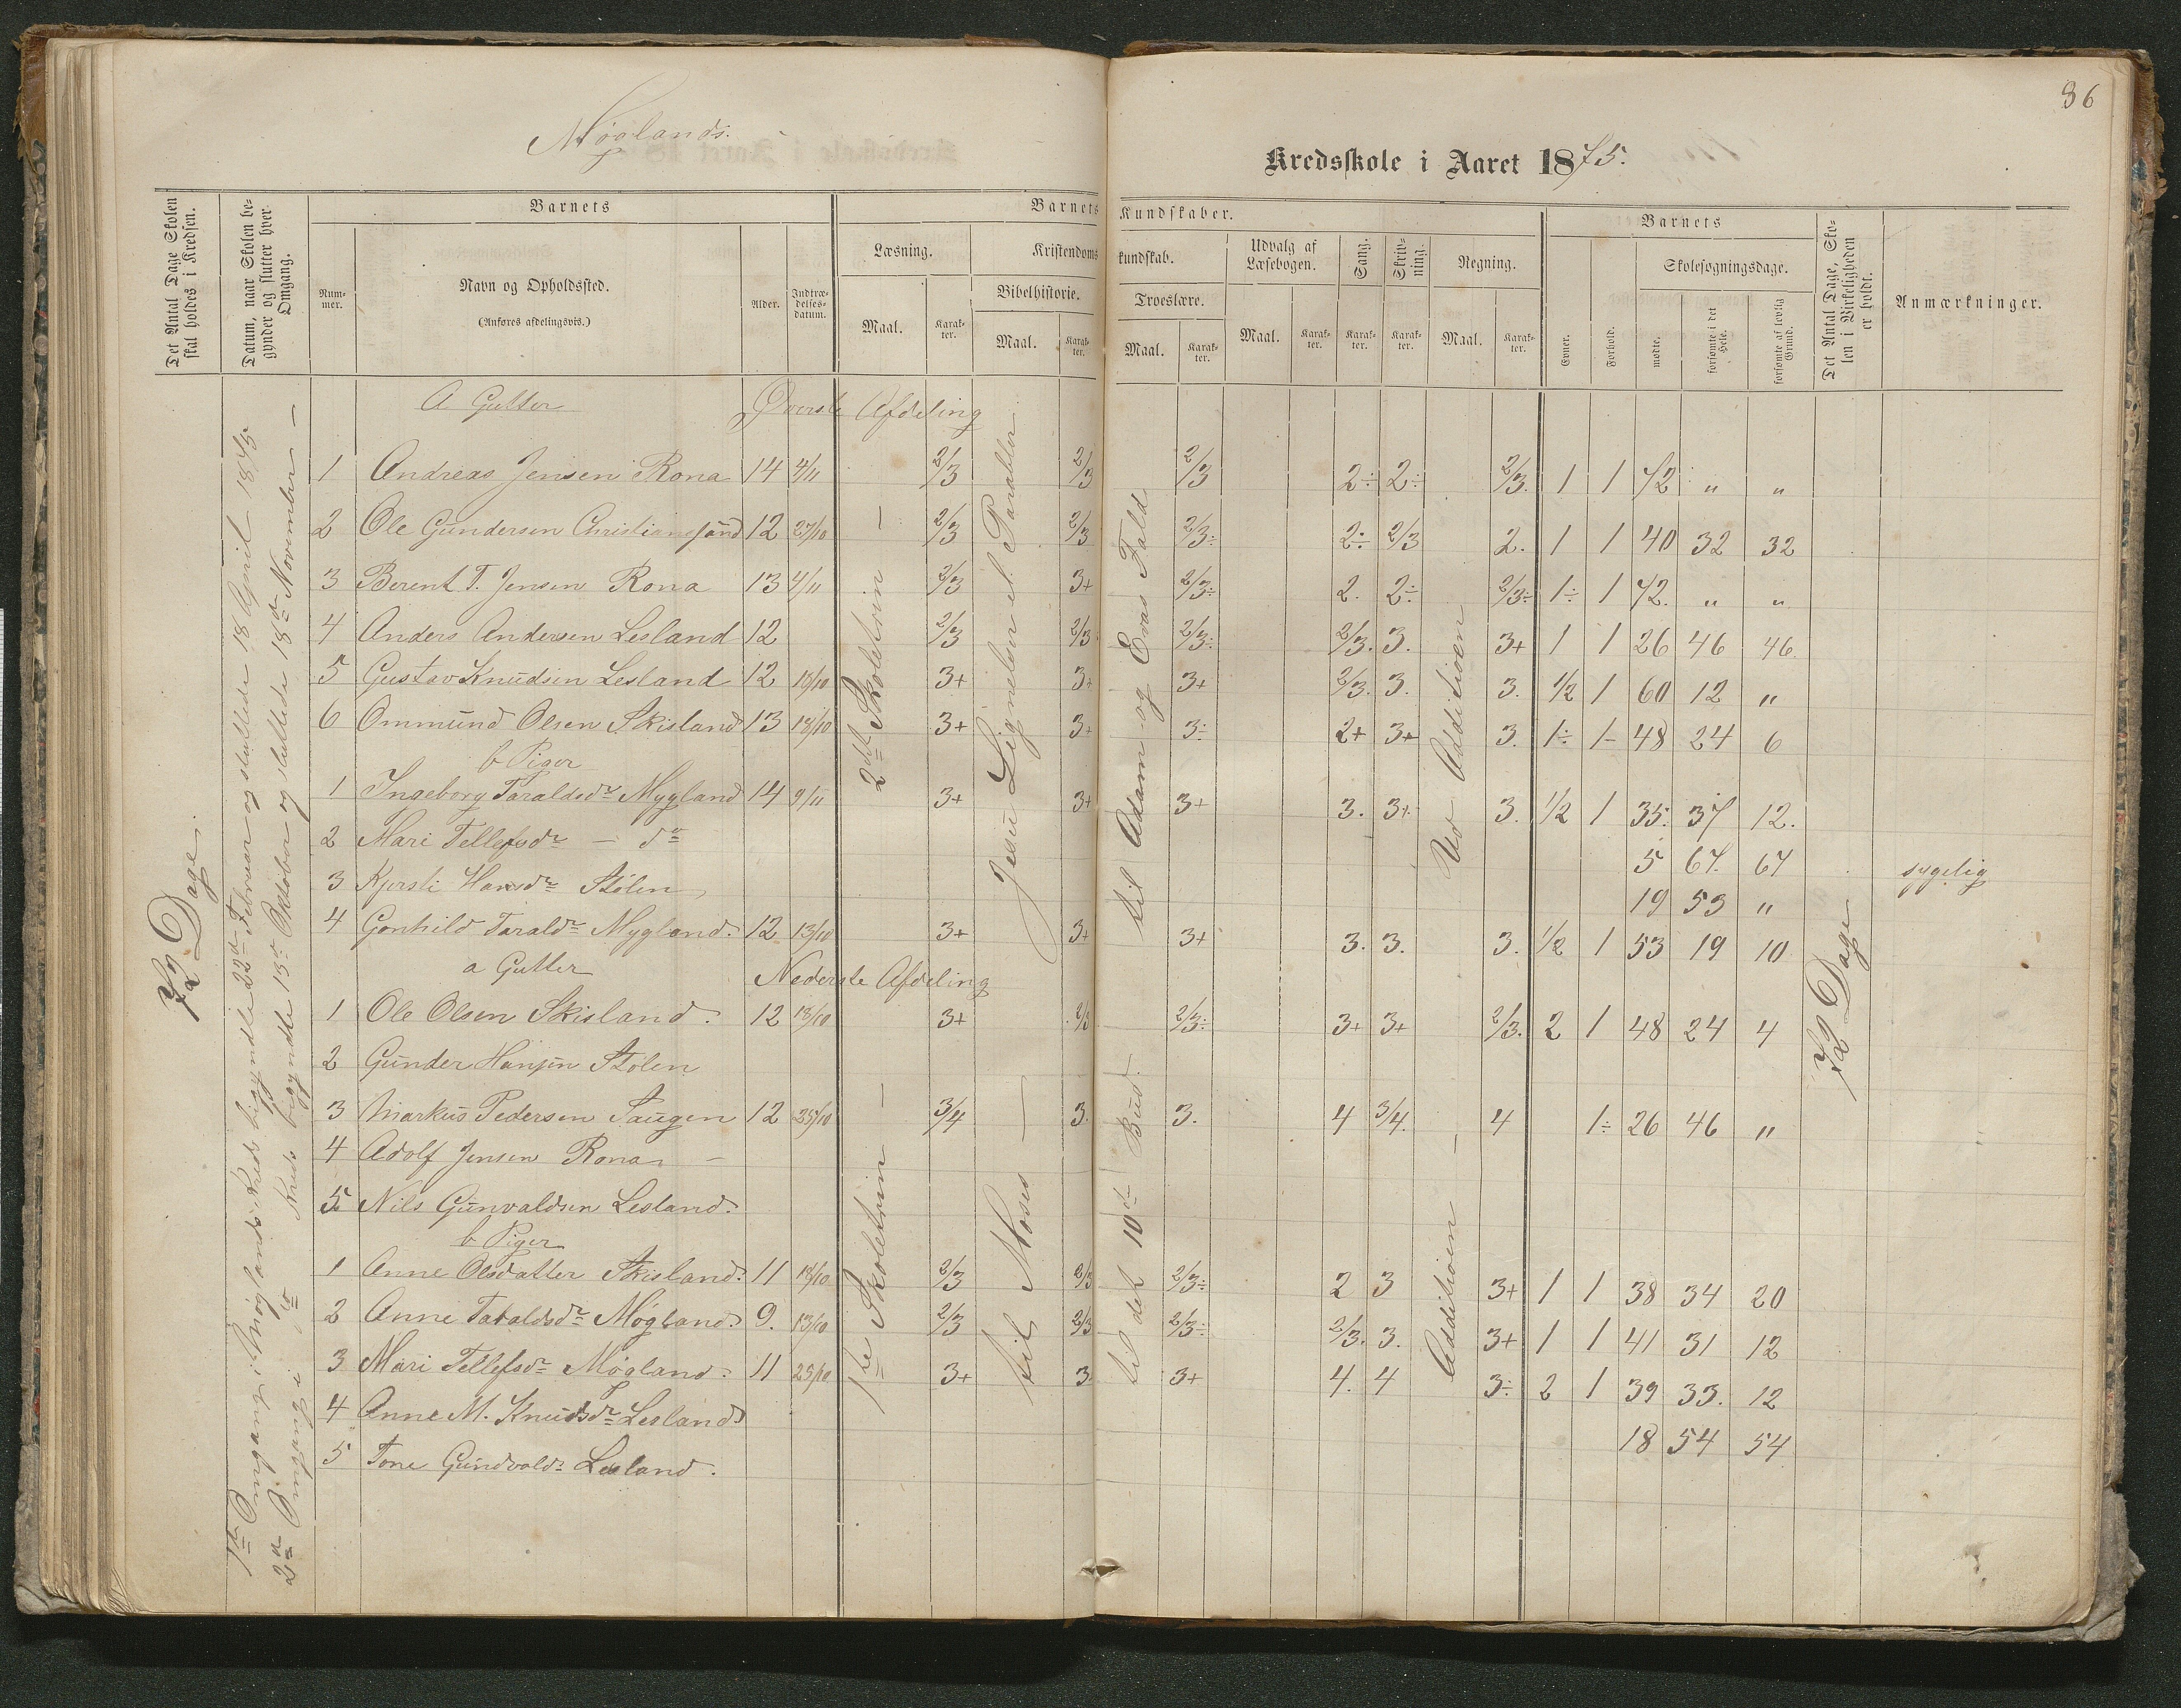 86
Møglands.
Kredsskole i Aaret 1875.
Det Antal Dage Skolen skal holdes i Kredsen.
Datum, naar Skolen begynder og slutter hver Omgang.
Barnets
Nummer.
Navn og Opholdssted.
(Anføres afdelingsvis.)
Alder.
Indtrædelsesdatum.
Barnets Kundskaber.
Læsning.
Maal.
Karakter.
Kristendomskundskab.
Bibelhistorie.
Maal.
Karakter.
Troeslære.
Maal.
Karakter.
Udvalg af Læsebogen.
Maal.
Karakter.
Sang.
Karakter.
Skrivning.
Karakter.
Regning.
Maal.
Karakter.
Barnets
Evner.
Forhold.
Skolesøgningsdage.
mødte.
forsømte i det Hele.
forsømte af lovlig Grund.
Det Antal Dage, Skolen i Virkeligheden er holdt.
Anmærkninger.
72 Dage.
1ste Omgang i Møglands Kreds begyndte 22de Februar og sluttede 18 April 1875
2den Omgang i do Kreds begyndte 13de Oktober og sluttede 18de November —
A Gutter Øverste Afdeling
1 Andreas Jensen Rona 14 4/11 2/3 2/3 2/3 2÷ 2÷ 2/3. 1 1 72 " "
2 Ole Gundersen Christiansand 12 27/10 — 2/3 2/3 2/3÷ 2÷ 2/3 2. 1 1 40 32 32
3 Berent T. Jensen Rona 13 4/11 2/3 3+ 2/3÷ 2. 2÷ 2/3÷ 1÷ 1 72. " "
4 Anders Andersen Lesland 12 2/3 2/3 2/3÷ 2/3. 3. 3+ 1 1 26 46 46.
5 Gustav Knudsen Lesland 12 18/10 3+ 3+ 3+ 2/3. 3. 3. 1/2 1 60 12 "
6 Ommund Olsen Skisland 13 18/10 3+ 3+ 3÷ 2+ 3+ 3. 1÷ 1- 48 24 6
b Piger
1 Ingeborg Taraldsdr Mygland 14 9/11 3+ 3+ 3+ 3. 3+ 3. 1/2 1 35. 37 12.
2 Mari Tellefsdr — do 5 67. 67 sygelig
3 Kjersti Hansdr Stølen 19 53 "
4 Gonhild Taraldr Mygland. 12 13/10 3+ 3+ 3+ 3. 3. 3. 1/2 1 53 19 10
2det Skoletrin
Jesu Lignelser el. Parabler
til Adam og Evas Fald
Ved Additioen
72 Dage
a Gutter Nederste Afdeling
1 Ole Olsen Skisland. 12 18/10 3+ 2/3 2/3÷ 3+ 3+ 2/3. 2 1 48 24 4
2 Gunder Hansen Stølen
3 Markus Pedersen Haugen 12 25/10 — 3/4 — 3. 3. 4 3/4. — 4 1÷ 26 46 "
4 Adolf Jensen Rona —
5 Nils Gunvaldsen Lesland.
b Piger
1 Anne Olsdatter Skisland. 11 18/10 2/3 2/3 2/3÷ 2 3 3+ 1 1 38 34 20
2 Anne Taraldsdr Møgland. 9. 13/10 2/3 2/3 2/3÷ 2/3. 3. 3+ 1 1 41 31 12
3 Mari Tellefsdr Møgland. 11 25/10 3+ 3 3+ 4. 4 3÷ 2 1 39 33. 12
4 Anne M. Knudsdr Lesland 18 54 54
5 Tone Gundvaldr Lesland.
1ste Skoletrin
til Moses
til det 10de Bud.
Additioen